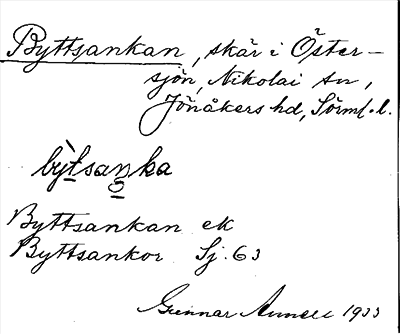 Byttsankan, skär i Öster-
sjön, Nikolai sn,
Jönåkers hd, Sörml. l.
bỳtsaŋka
Byttsankan ek
Byttsankor Sj. 63
Gunnar Annell 1933